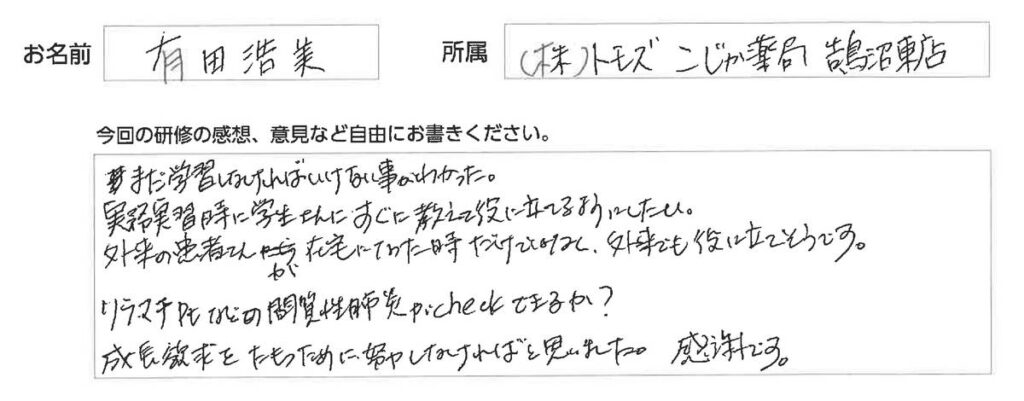 お名前 有田浩美 所属 (株)トモズ こじか薬局 鵠沼東店
今回の研修の感想、意見など自由にお書きください。
まだ学習しなければいけない事がわかった。
実務実習時に学生さんにすぐに教えて役に立てるようにしたい。
外来の患者さんが在宅になった時だけではなく、外来でも役に立てそうです。
リウマチPtなどの間質性肺炎がcheckできるか?
成長欲求をたもつために努力しなければと思いました。 感謝です。